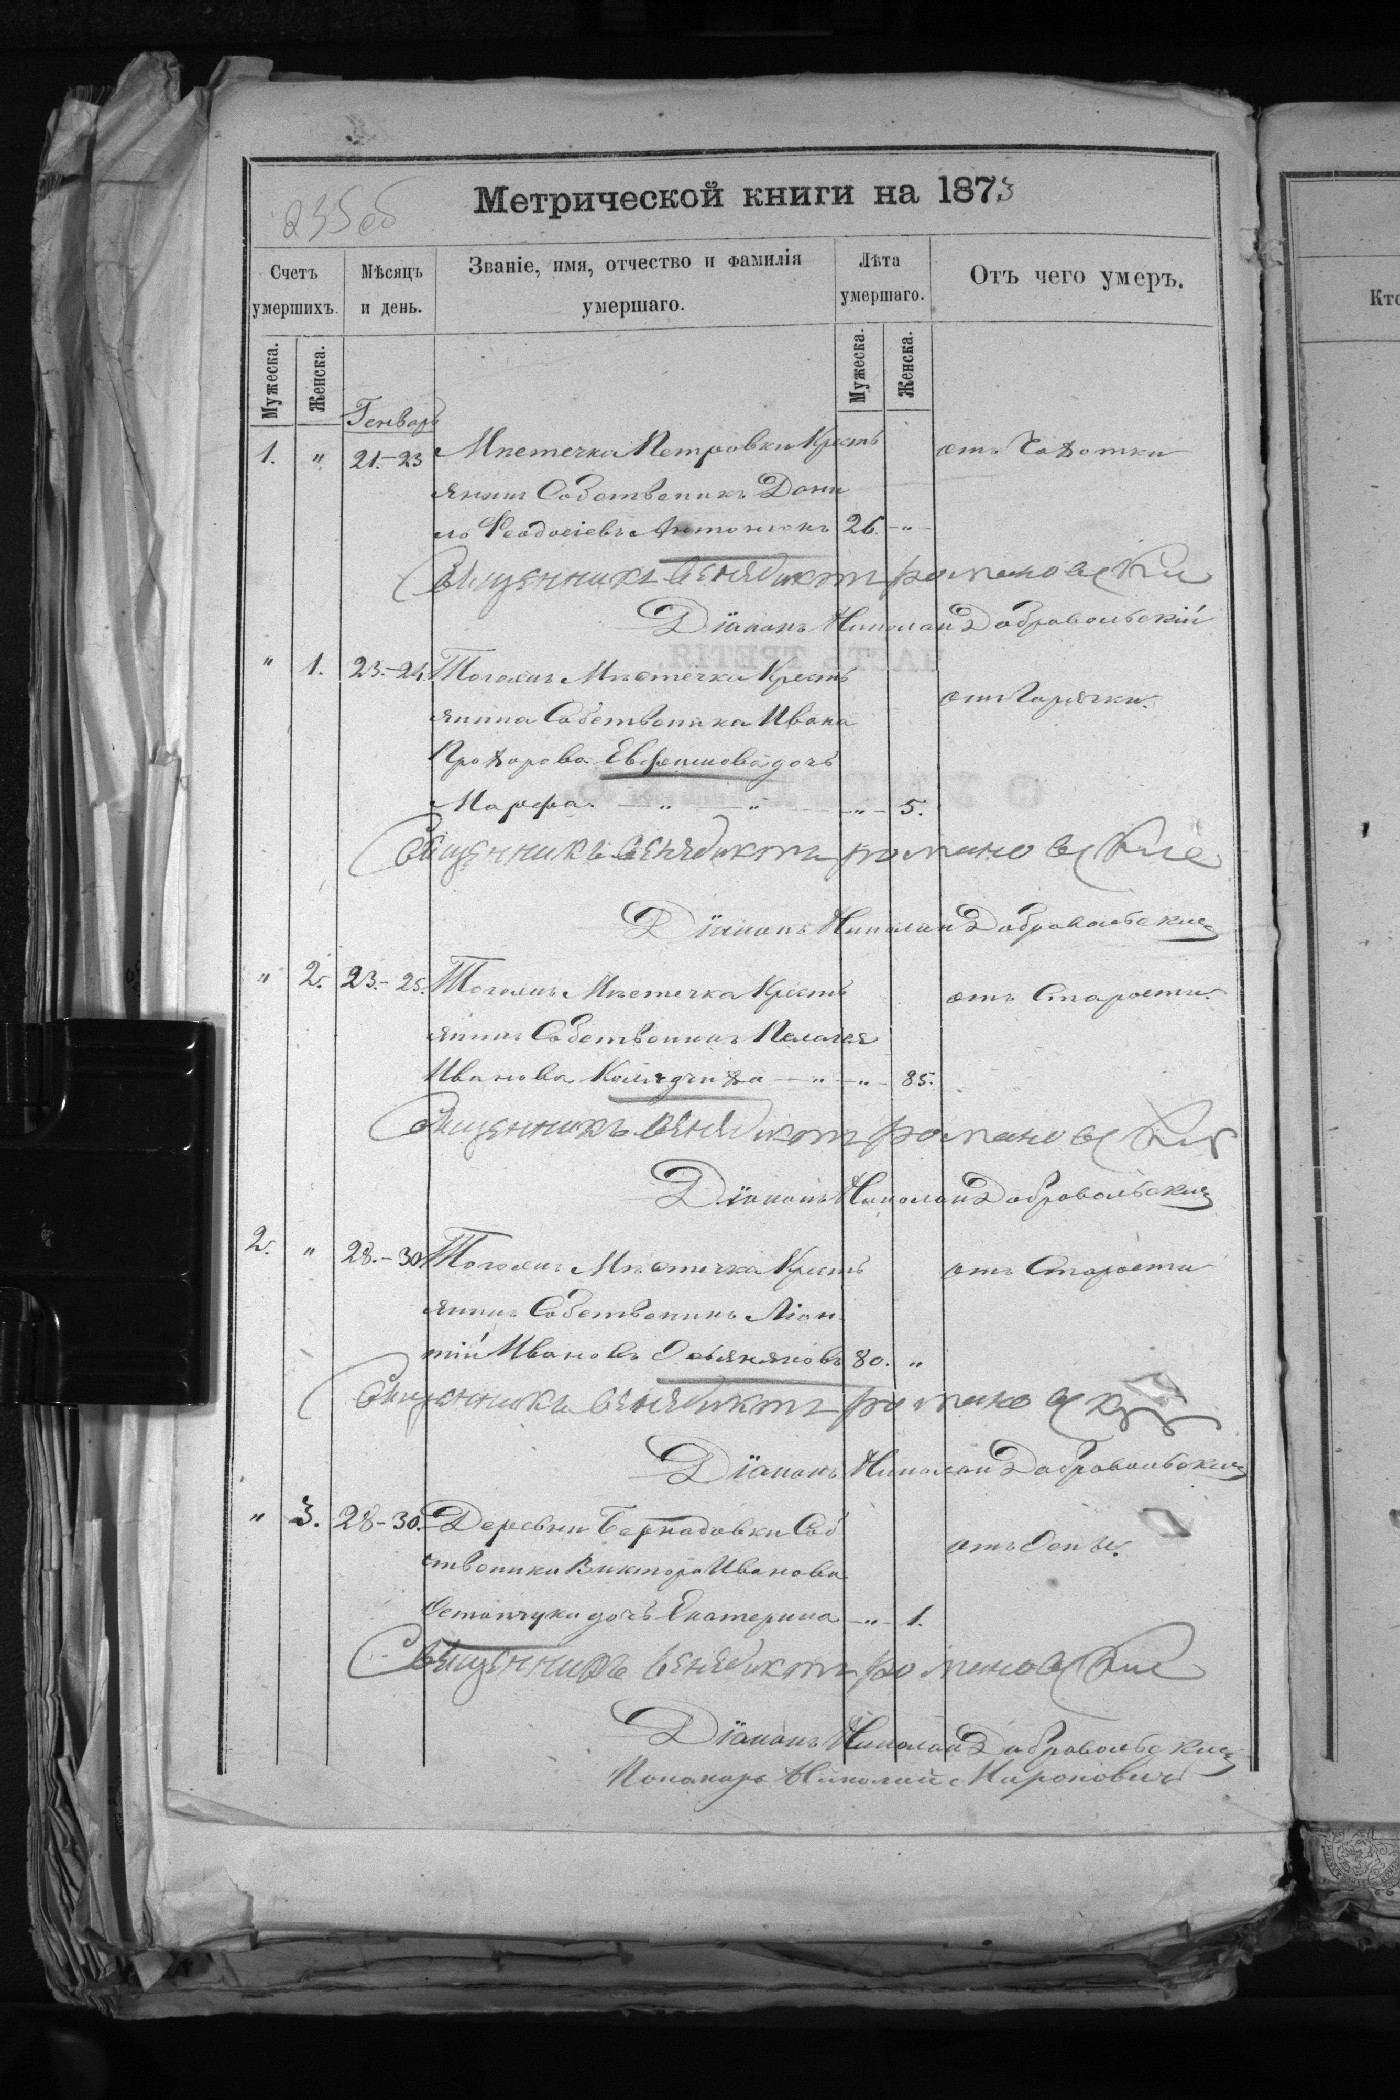 235об
Метрической книги на 1873
Счетъ умершихъ.
Мѣсяцъ и день.
Званіе, имя, отчество и фамилія умершаго.
Лѣта умершаго.
Отъ чего умеръ.
Мужеска.
Женска.
Мужеска.
Женска.
Генварь
1. " 21.-23 Мѣстечка Петровки Кресть отъ Чахотки
янинъ Собственикъ Дани
ло Феодосіевъ Антонюкъ 26. - " -
Священникъ Венедиктъ Романовскій
Діаконъ Николай Добровольскій
" 1. 23.-24. Тогожъ Мѣстечка Кресть
янина Собственика Ивана отъ Горячки.
Прохорова Евфимова дочь
Марфа. - " - " - " - 5.
Священникъ Венедиктъ Романовскій
Діаконъ Николай Добровольскій
" 2. 23.-25. Тогожъ Мѣстечка Кресть отъ Старости.
янинъ Собственикъ Пелагея
Иванова - " - " - 85.
Священникъ Венедиктъ Романовскій
Діаконъ Николай Добровольскій
2. " 28.-30 Тогожъ Мѣстечка Кресть отъ Старости
янинъ Собственикъ Ліон
тій Ивановъ 80. "
Священникъ Венедиктъ Романовскій
Діаконъ Николай Добровольскій
" 3. 28-30. Деревни Бернадовки Соб
ственика Виктора Иванова отъ Оспы.
Остапчука дочь Екатерина - " - 1.
Священникъ Венедиктъ Романовскій
Діаконъ Николай Добровольскій
Пономарь Николай Миронович
Кто